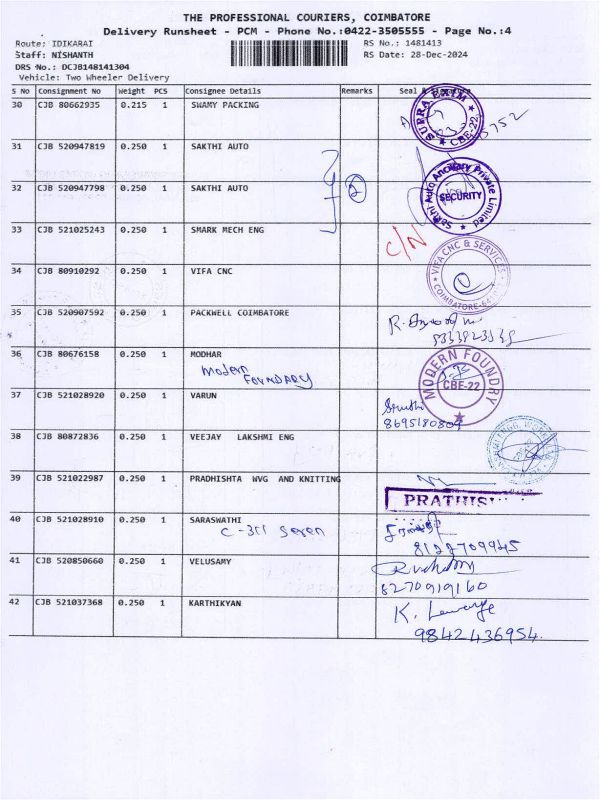 THE PROFESSIONAL COURIERS, COIMBATORE
Delivery Runsheet - PCM - Phone No.:0422-3505555 - Page No.:4
Route: IDIKARAI RS No.: 1481413
Staff: NISHANTH RS Date: 28-Dec-2024
DRS No.: DCJB148141304
Vehicle: Two Wheeler Delivery
S No Consignment No Weight PCS Consignee Details Remarks Seal &
30 CJB 80662935 0.215 1 SWAMY PACKING
SUBRA EXIM CBE-22
31 CJB 520947819 0.250 1 SAKTHI AUTO
32 CJB 520947798 0.250 1 SAKTHI AUTO 2
Sakthi Auto Ancillary Private Limited SECURITY
33 CJB 521025243 0.250 1 SMARK MECH ENG C/N
34 CJB 80910292 0.250 1 VIFA CNC
VIFA CNC & SERVICES COIMBATORE-641
35 CJB 520907592 0.250 1 PACKWELL COIMBATORE
36 CJB 80676158 0.250 1 MODHAR
Modern FOUNDARY
MODERN FOUNDRY CBE-22
37 CJB 521028920 0.250 1 VARUN
8695180804
38 CJB 80872836 0.250 1 VEEJAY LAKSHMI ENG
39 CJB 521022987 0.250 1 PRADHISHTA WVG AND KNITTING
PRATHIS
40 CJB 521028910 0.250 1 SARASWATHI
8122709945
41 CJB 520850660 0.250 1 VELUSAMY
8270919160
42 CJB 521037368 0.250 1 KARTHIKYAN
K.
9842436954